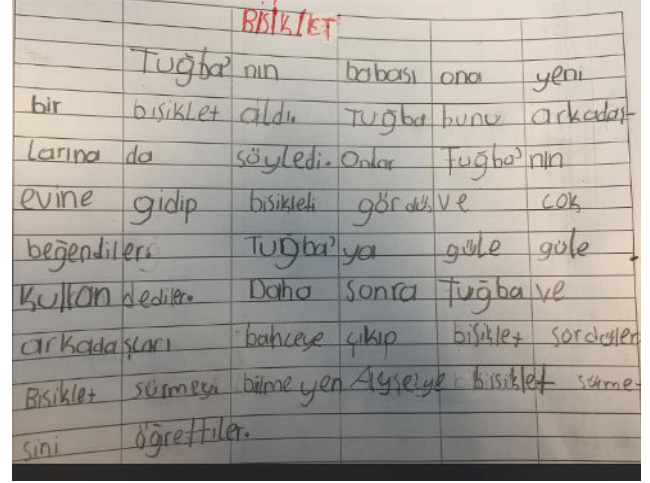 BİSİKLET
Tuğba'nın babası ona yeni
bir bisiklet aldı. Tuğba bunu arkadaş-
larına da söyledi. Onlar Tuğba'nın
evine gidip bisikleti gördü, ve çok
beğendiler. Tuğba'ya güle güle
kullan dediler. Daha sonra Tuğba ve
arkadaşları bahçeye çıkıp bisiklet sürdüler
Bisiklet sürmeyi bilmeyen Ayşe'ye bisiklet sürme-
sini öğrettiler.